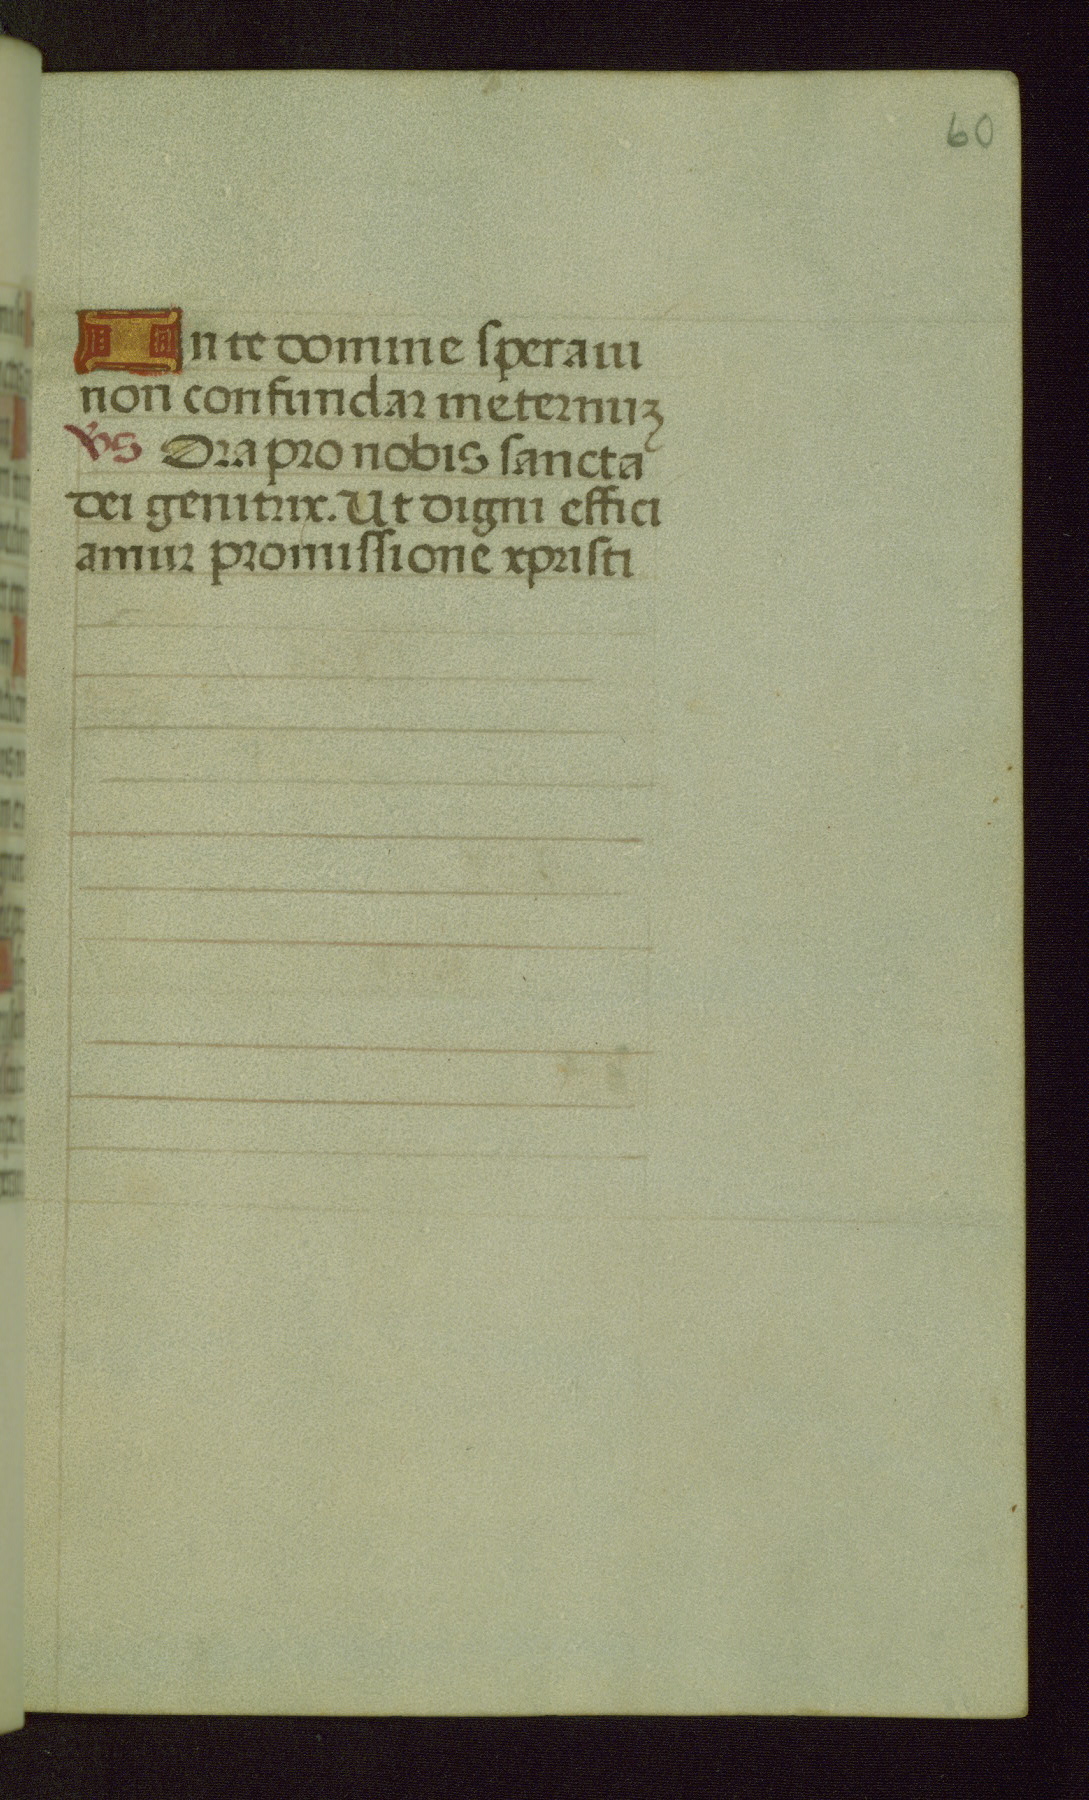 60
In te domine speraui
non confundar in eternuʒ
Vs Ora pro nobis sancta
dei genitrix. Ut digni effici
amur promissione xpristi